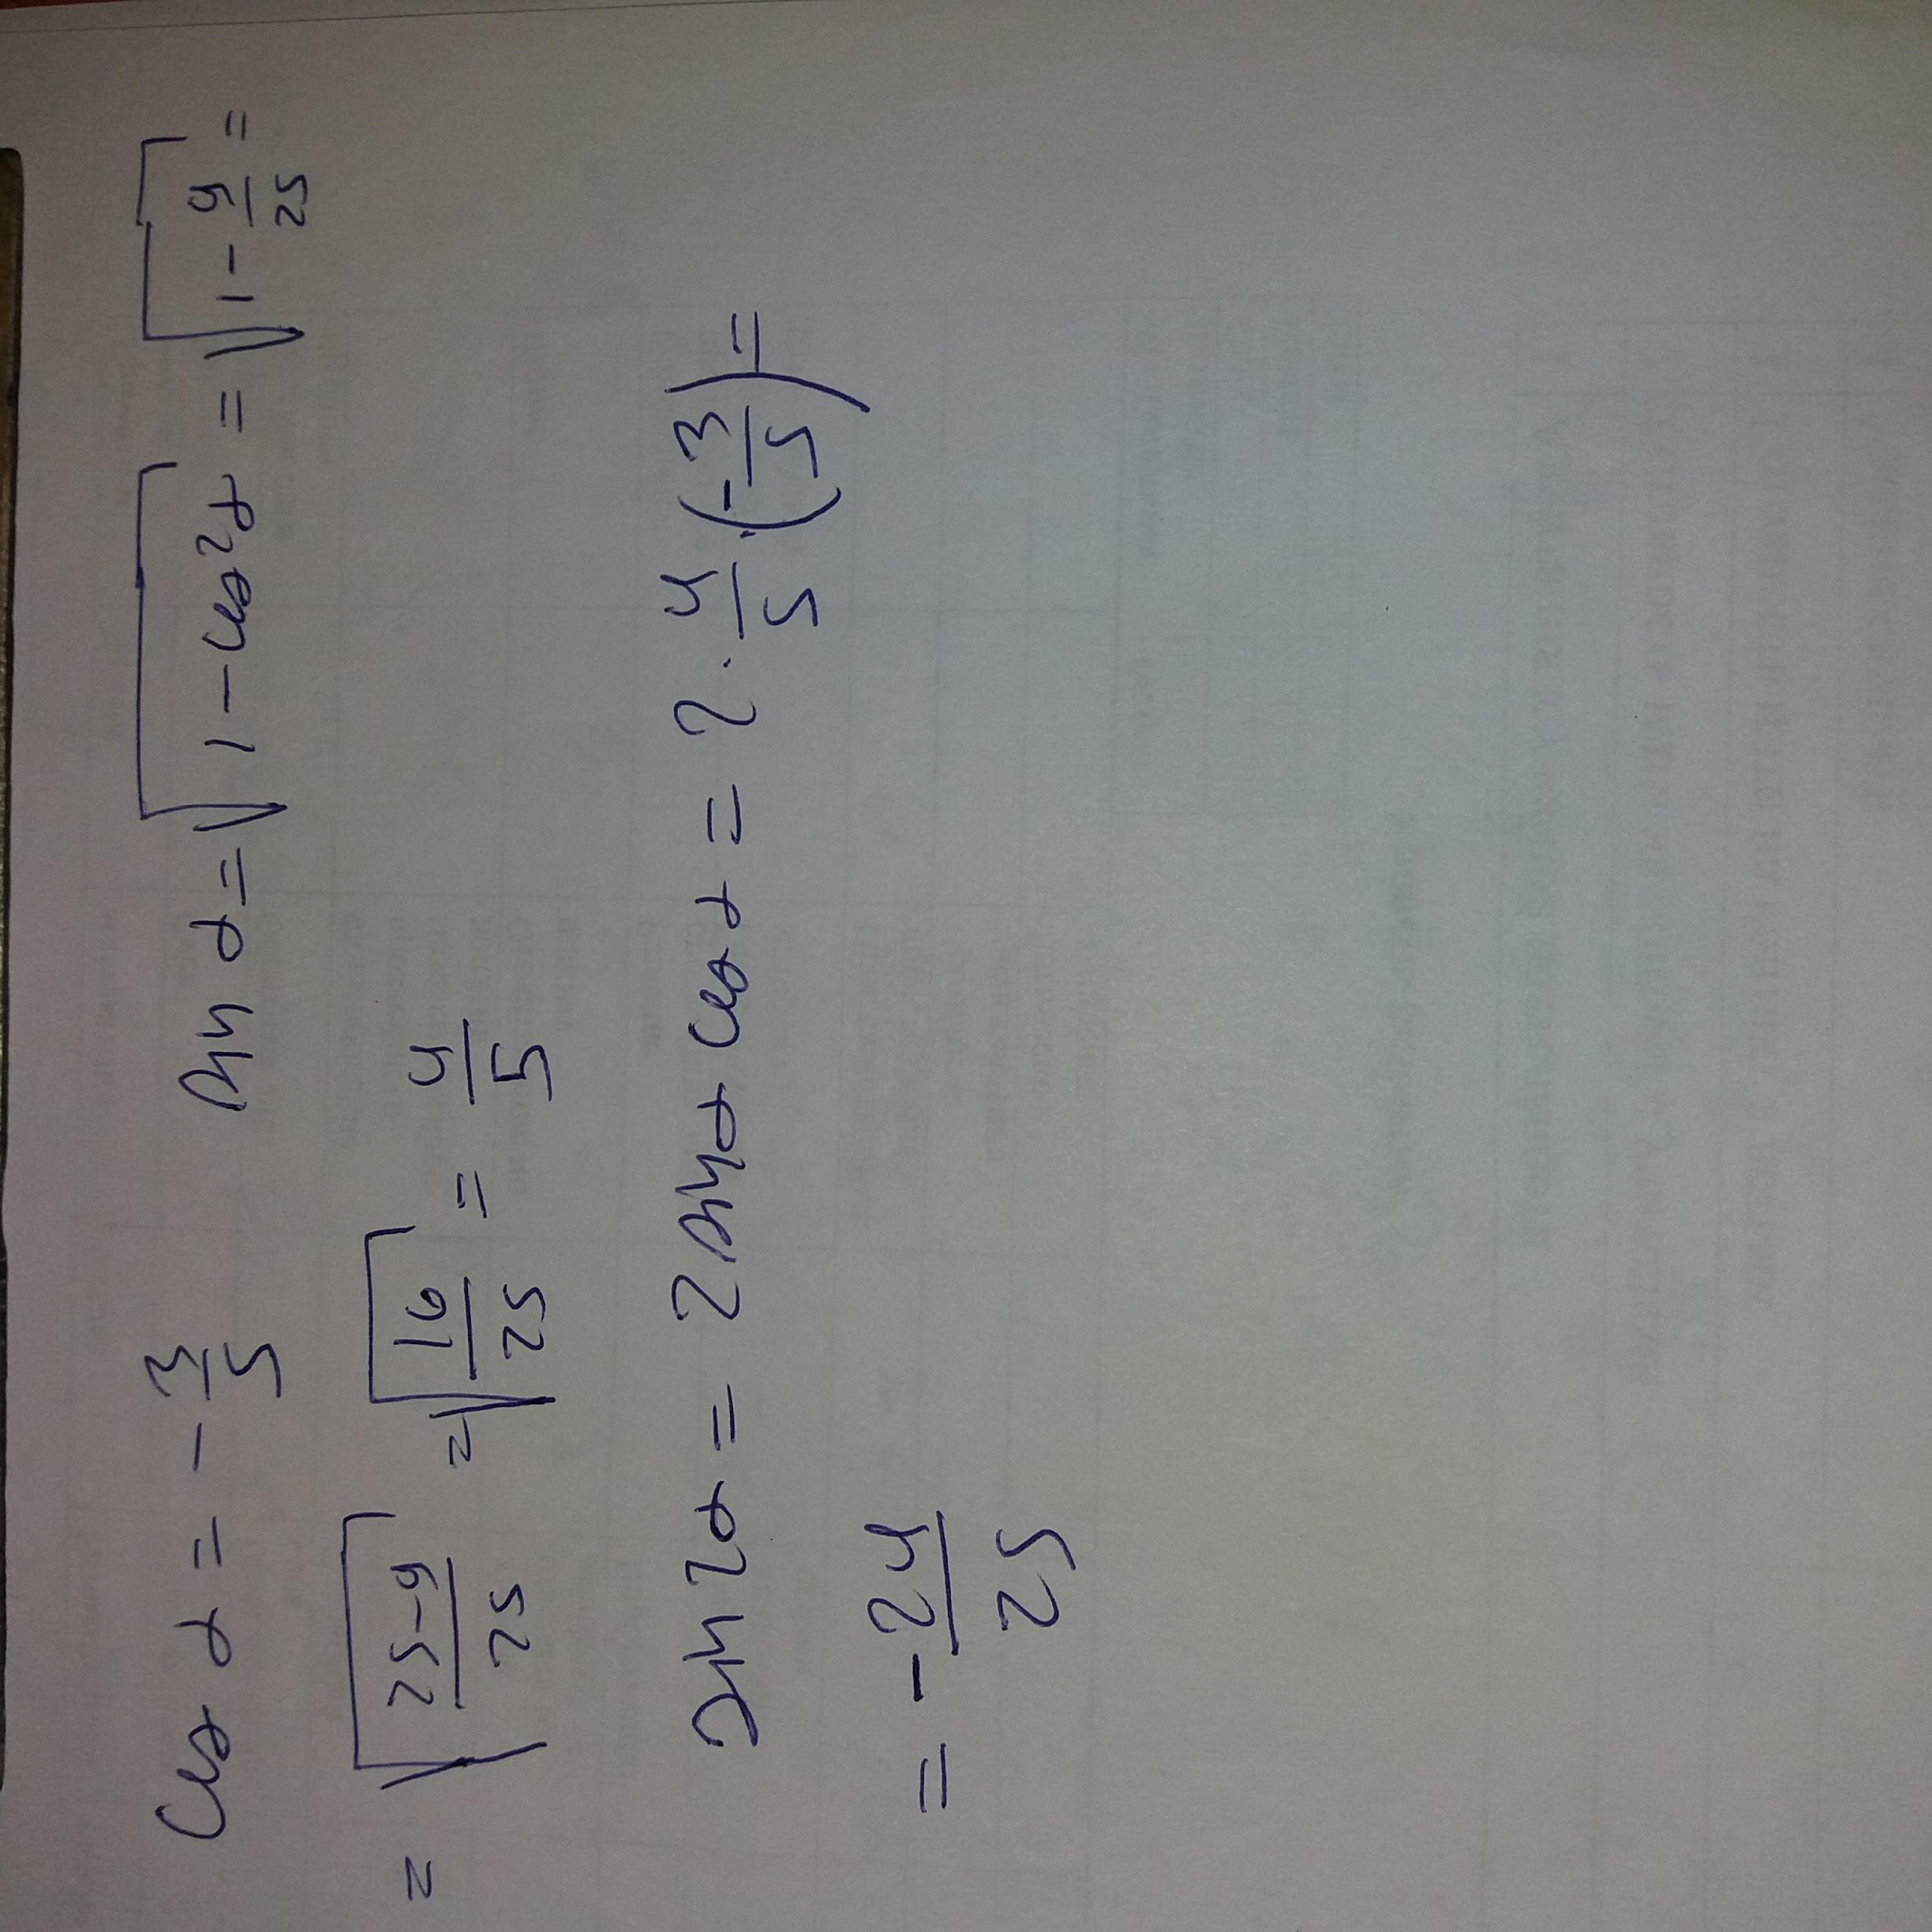 cos α = - 3/5 sin α = √(1 - cos²α) = √(1 - 9/25) =
= √((25-9)/25) = √(16/25) = 4/5
sin 2α = 2 sin α cos α = 2 · 4/5 · (-3/5) =
= - 24/25